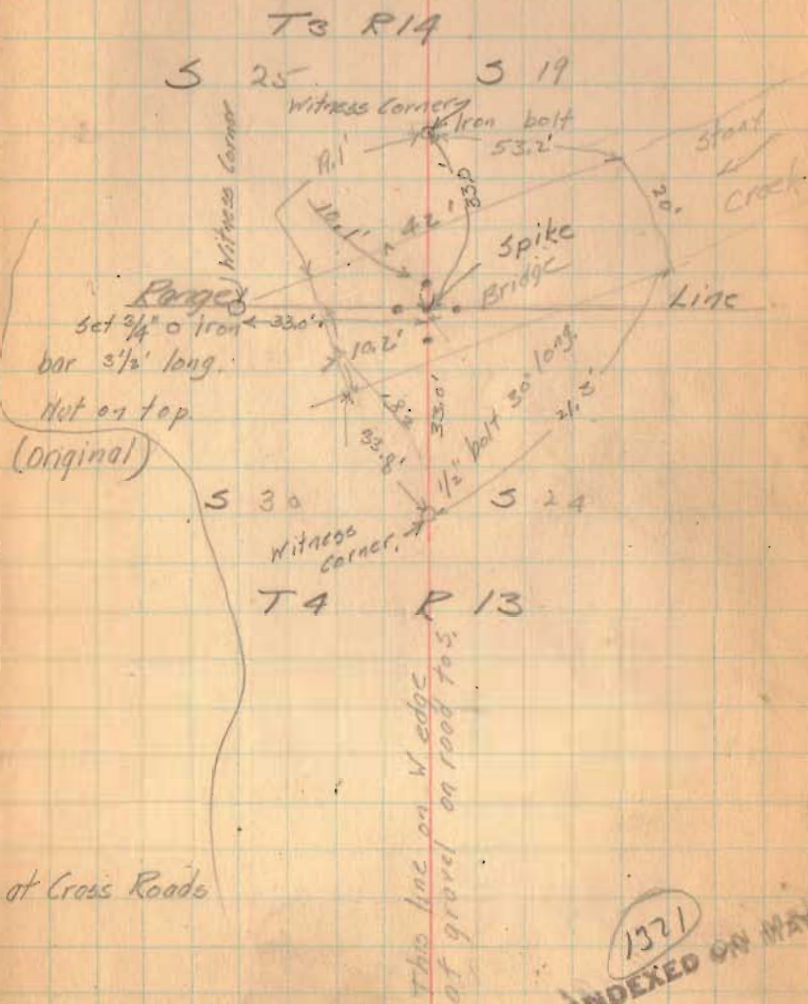 T3 R14
S 25 S 19
Witness Corner
Iron bolt
53.2'
Stony
Creek
20'
Witness Corner
10.1'
42'
33.0'
Spike
Bridge
Range Line
Set 3/4" o Iron 33.0'
bar 3 1/2' long.
Nut on top
(Original)
10.2'
33.8'
33.0'
1/2" bolt 30" long.
21.3'
S 30 S 24
Witness
Corner.
T4 R 13
This line on W edge
of gravel on road to S.
at Cross Roads
1321
INDEXED ON MA